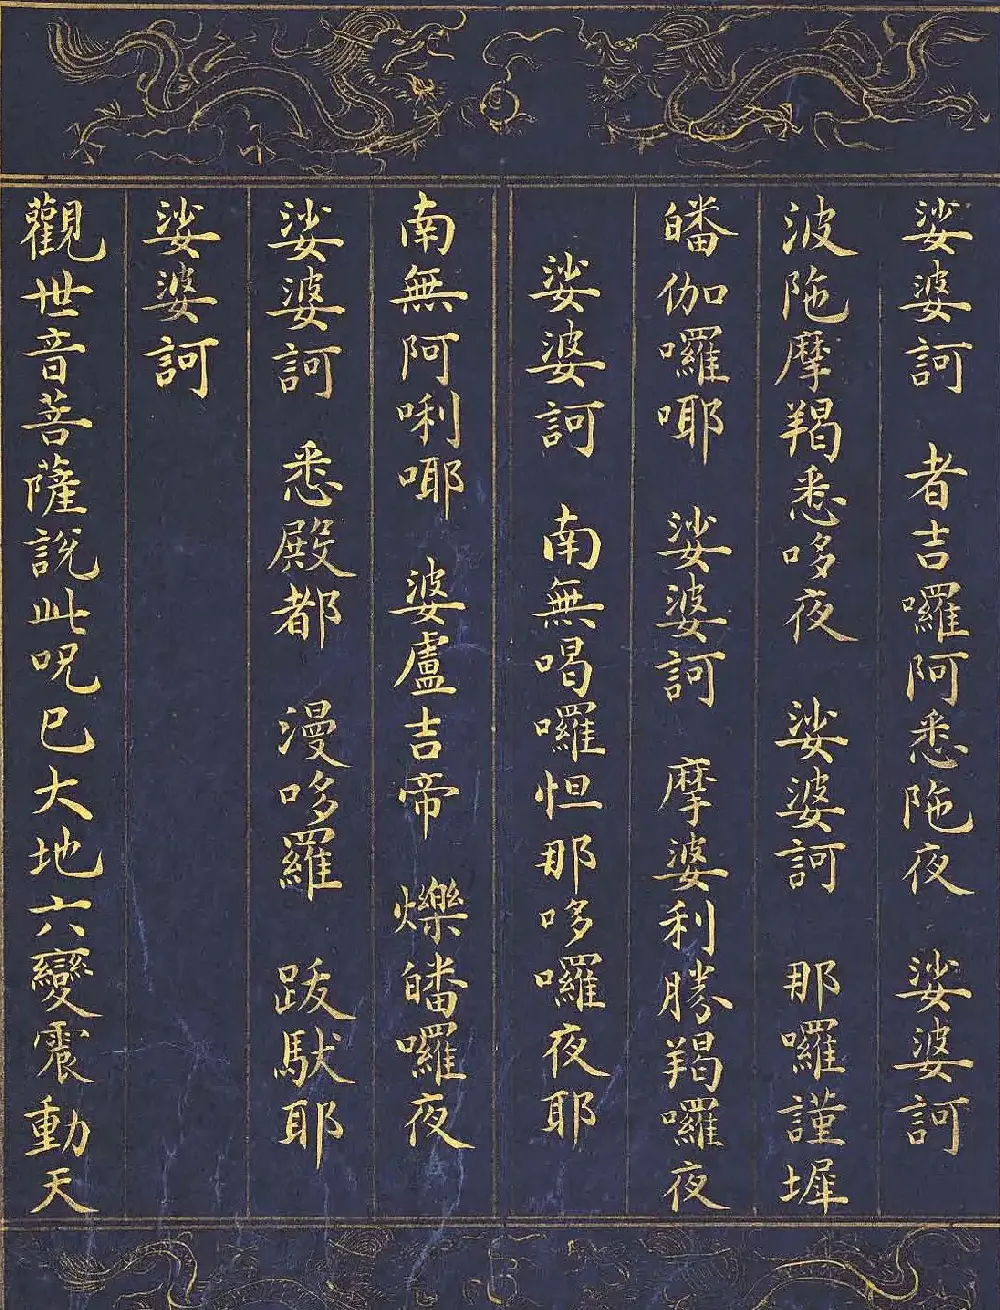 娑婆訶 者吉囉阿悉陁夜 娑婆訶
波陁摩羯悉哆夜 娑婆訶 那囉謹墀
皤伽囉㖿 娑婆訶 摩婆利勝羯囉夜
娑婆訶 南無喝囉怛那哆囉夜耶
南無阿唎㖿 婆盧吉帝 爍皤囉夜
娑婆訶 悉殿都 漫哆羅 跋馱耶
娑婆訶
觀世音菩薩說此呪已大地六變震動天